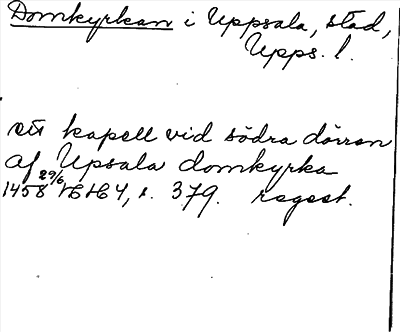 Domkyrkan i Uppsala, stad,
Upps. l.
ett kapell vid södra dörren
af Upsala domkyrka
1458 29/6 HH 4, s. 379. regest.